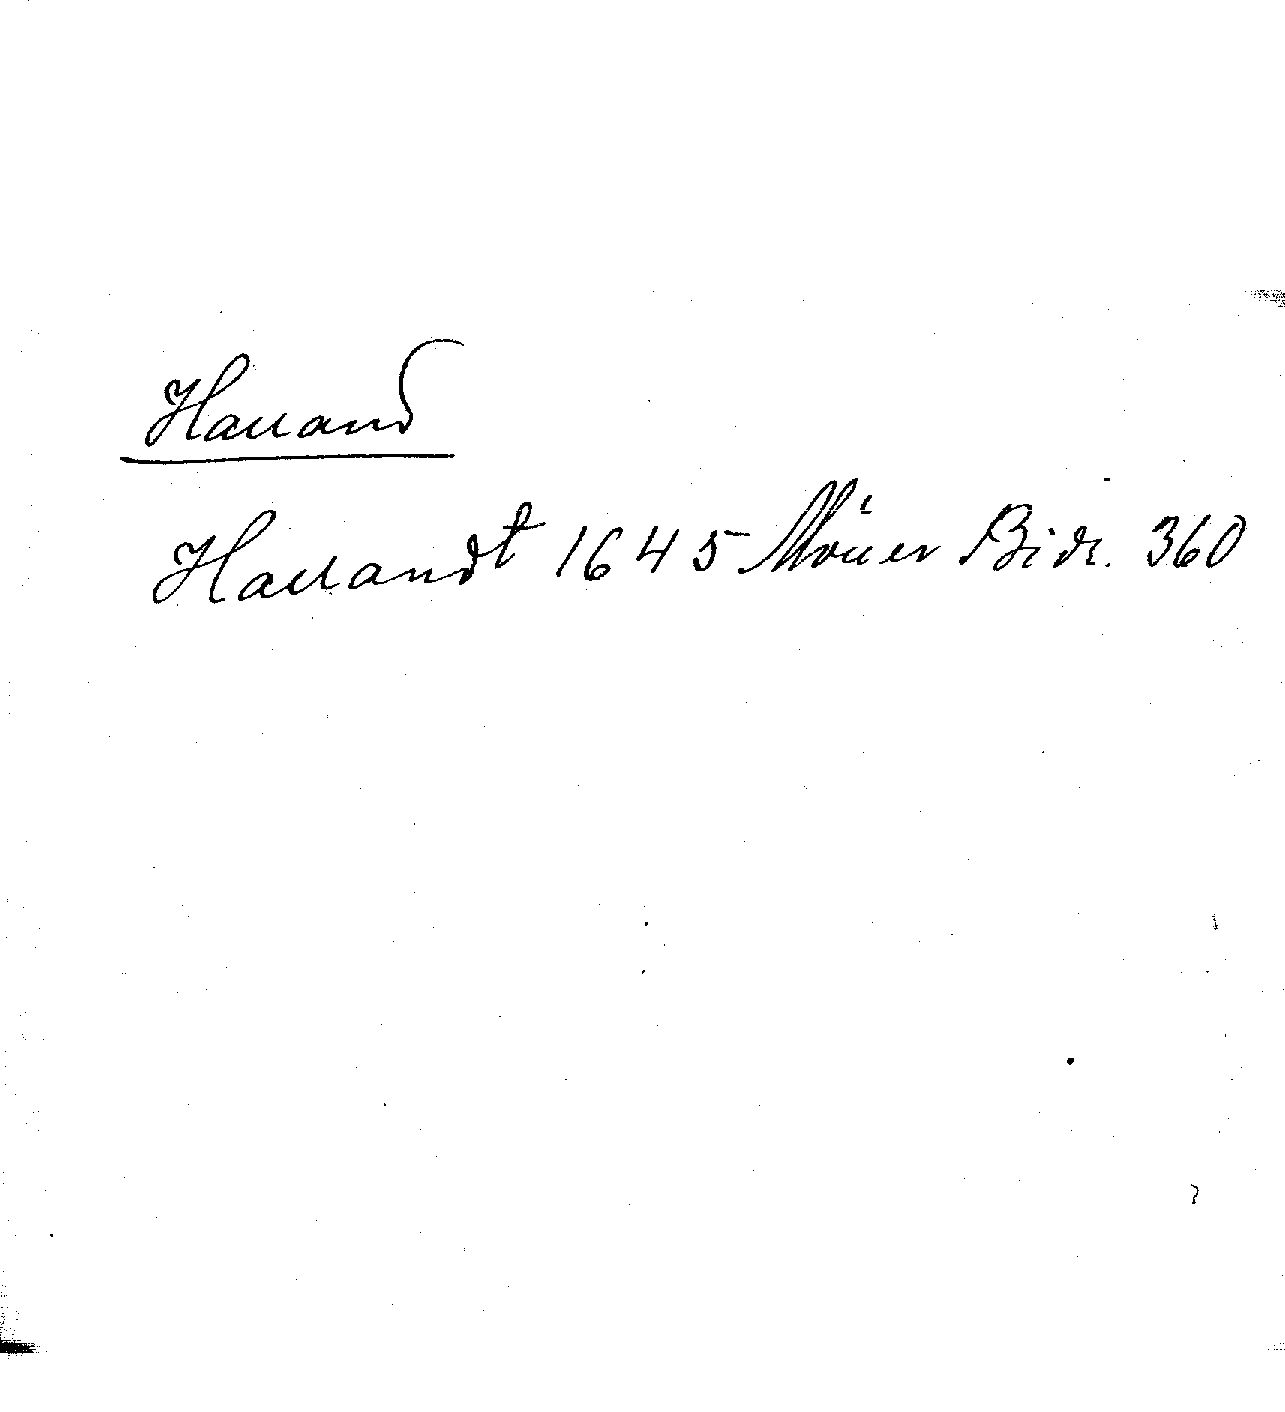 Halland
Hallandt 1645 Möller Bidr. 360